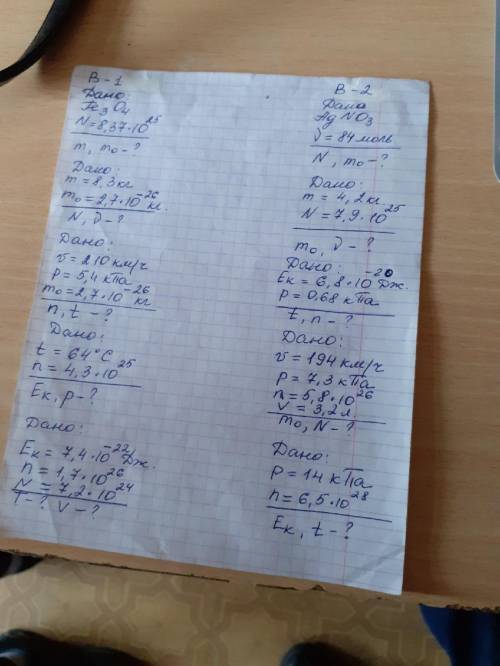 В-1
Дано:
Fe₃O₄
N=8,37·10²⁵
m, m₀-?
Дано:
m=8,3 кг
m₀=2,7·10⁻²⁶ кг.
N, ν-?
Дано:
v=210 км/ч
p=5,4 кПа
m₀=2,7·10⁻²⁶ кг
n, t-?
Дано:
t=64°C
n=4,3·10²⁵
Eк, p-?
Дано:
Eк=7,4·10⁻²² Дж.
n=1,7·10²⁶
N=7,2·10²⁴
T-? V-?
В-2
Дано
AgNO₃
ν=84 моль
N, m₀-?
Дано:
m=4,2 кг
N=7,9·10²⁵
m₀, ν-?
Дано:
Eк=6,8·10⁻²⁰ Дж.
p=0,68 кПа
t, n-?
Дано:
v=194 км/ч
p=7,3 кПа
n=5,8·10²⁶
V=3,2 л.
m₀, N-?
Дано:
p=14 кПа
n=6,5·10²⁸
Eк, t-?